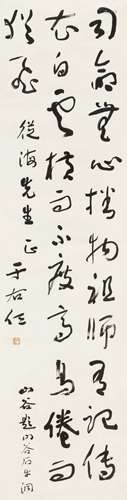 司命無心播物祖師有記傳
衣白雲橫而不度高鳥倦而
猶飛
從海先生正
于右任
山谷題山谷石牛洞